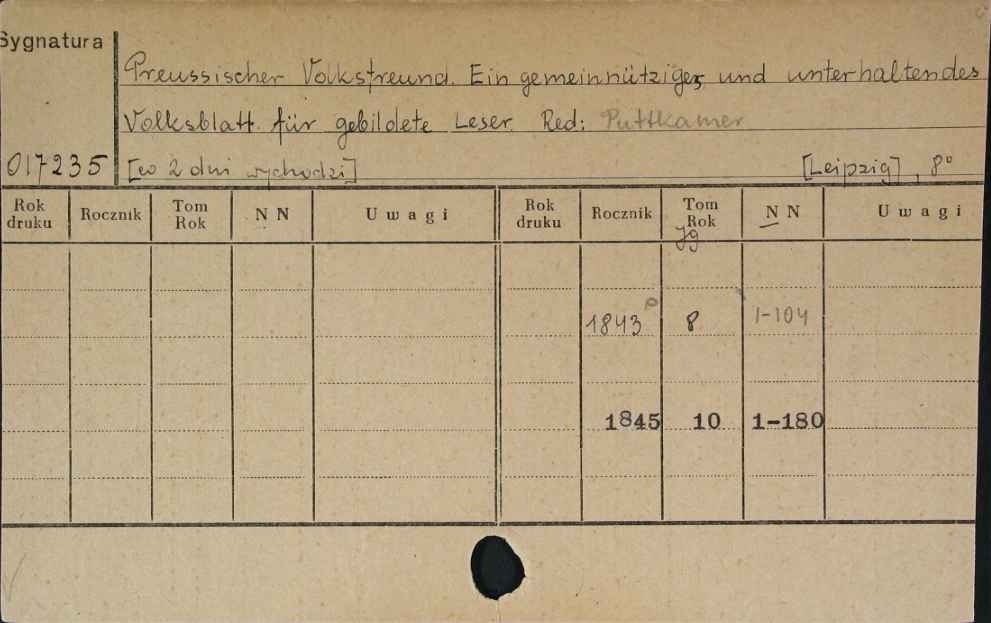 Sygnatura
Preussischer Volksfreund. Ein gemeinnütziges und unterhaltendes
Volksblatt für gebildete Leser. Red: Puttkamer
017235 [co 2 dni wychodzi] [Leipzig], 8°
Rok druku Rocznik Tom Rok N N Uwagi Rok druku Rocznik Tom Rok N N Uwagi
Jg
1843 8 1-104
1845 10 1-180